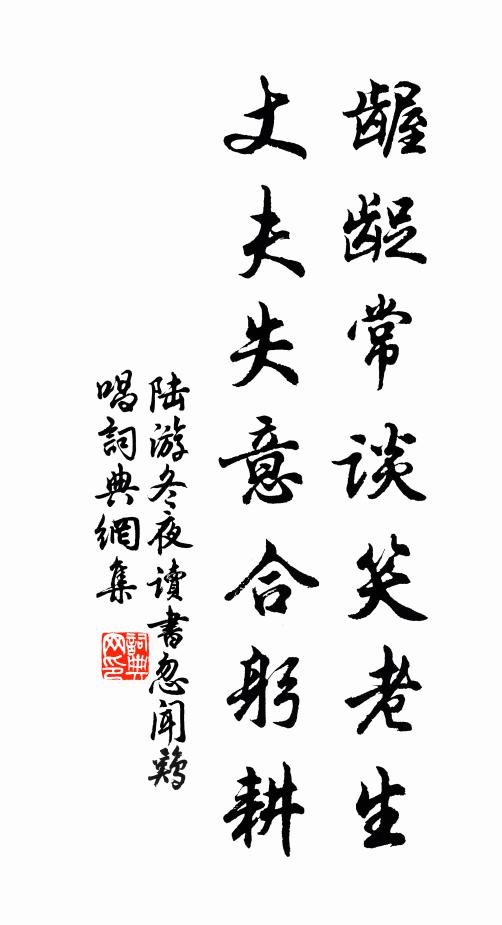 龌龊常谈笑老生
丈夫失意合躬耕
陆游冬夜读書忽闻鷄
唱詞典網集
詞典网印